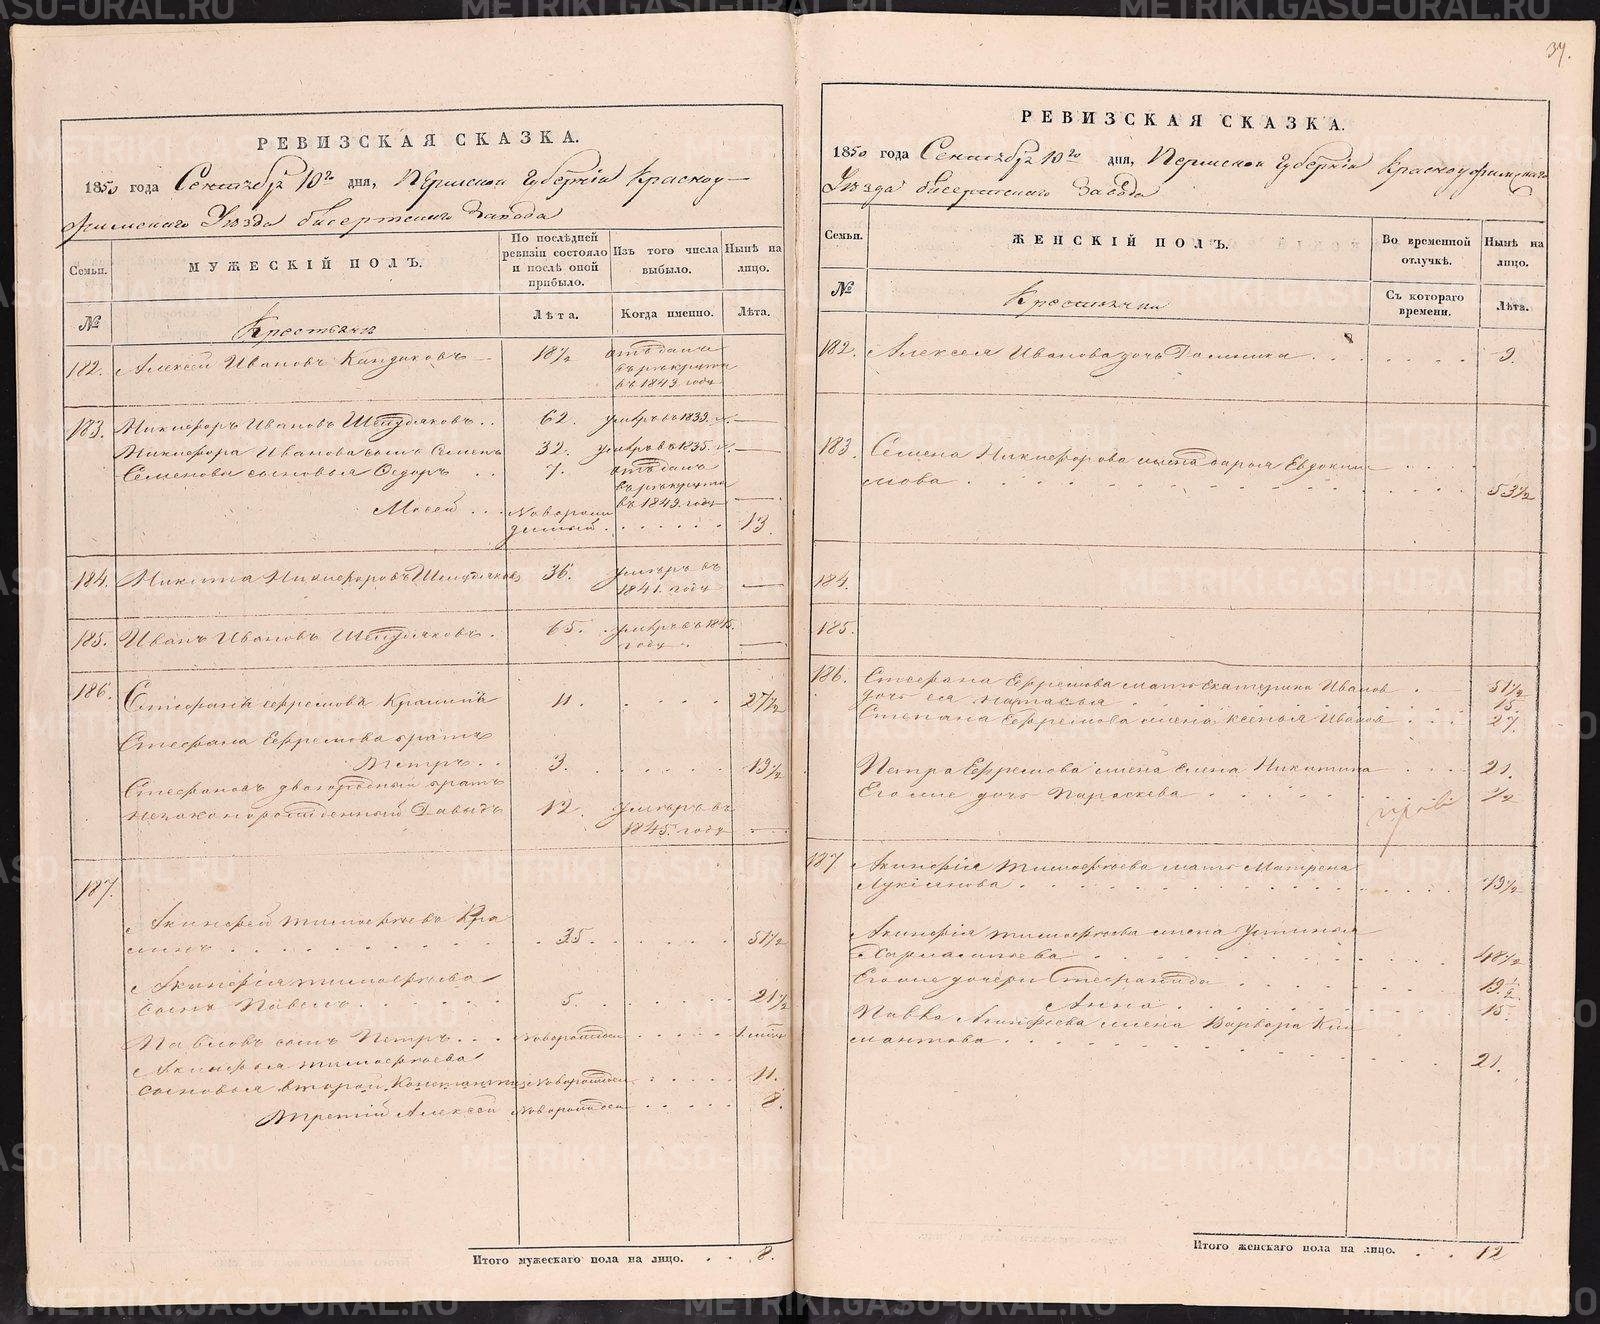 37.
РЕВИЗСКАЯ СКАЗКА.
1850 года Сентября 10го дня, Пермской Губерніи Красноу-
фимскаго Уѣзда Бисертскаго Завода
Семьи.
МУЖЕСКІЙ ПОЛЪ.
По послѣдней ревизіи состояло и послѣ оной прибыло.
Изъ того числа выбыло.
Нынѣ на лицо.
№
Крестьяне
Лѣта.
Когда именно.
Лѣта.
182. Алексей Ивановъ Кандаковъ 18½ отъданъ
въ рекруты
въ 1843 году
183. Никифоръ Ивановъ Шелудяковъ.. 62. умеръ въ 1839. г. —
Никифора Иванова сынъ Семенъ 32. умеръ въ 1835. г. —
Семеновы сыновья Федоръ . . 7. отъданъ
въ рекруты
въ 1843. году —
Мосей . . . Новорож
денный . . . . . . 13.
184. Никита Никифоровъ Шелудяковъ 36. умеръ въ
1841. году —
185. Иванъ Ивановъ Шелудяковъ. 65. умеръ въ 1845.
году. —
186. Стефанъ Ефремовъ Крапинъ 11. . . . . . 27½
Стефана Ефремова братъ
Петръ . . 3. . . . . . 19½
Стефановъ двоюродный братъ
незаконорожденный Давыдъ 12. умеръ въ
1845. году —
187.
Акинфей Тимофеевъ Кра
пинъ . . . . . . . . . 35. . . . . . 51½
Акинфія Тимофеева
сынъ Павелъ . . . . . . 5. . . . . . 21½
Павловъ сынъ Петръ . . . Новорожден
Акинфья Тимофеева
сыновья второй Константинъ Новорожден . . . . . 11.
Третій Алексей Новорожден . . . . . 8.
Итого мужескаго пола на лицо. . . . 8.
РЕВИЗСКАЯ СКАЗКА.
1850 года Сентября 10го дня, Пермской Губерніи Красноуфимскаго
Уѣзда Бисертскаго Завода
Семьи.
ЖЕНСКІЙ ПОЛЪ.
Во временной отлучкѣ.
Нынѣ на лицо.
№
Крестьянки
Съ котораго времени.
Лѣта.
182. Алексея Иванова дочь Домника . . . . . . . 9.
183. Семена Никифорова жена Дарья Евдоки
мова . . . . . . . . . . . . . . 53½
184.
185.
186. Стефана Ефремова мать Екатерина Иванов . 51½
дочь ея Настасья . . . . . . . . 15.
Степана Ефремова жена Ксенья Иванов . . . . 27
Петра Ефремова жена Елена Никитина . . . . 21.
Его же дочь Пароскева . . . . . . . ½
187. Акинфія Тимофеева мать Матрена
Лукіянова . . . . . . . . . . . 79½
Акинфія Тимофеева жена Устинья
Харлампьева . . . . . . . . . 48½
Его же дочери Стефанида . . . . . . 19½
Анна . . . . . . . 15.
Павла Акинфеева жена Варвара Кли
мантова . . . . . . . . . . . 21.
Итого женскаго пола на лицо. . . . 12
METRIKI.GASO-URAL.RU